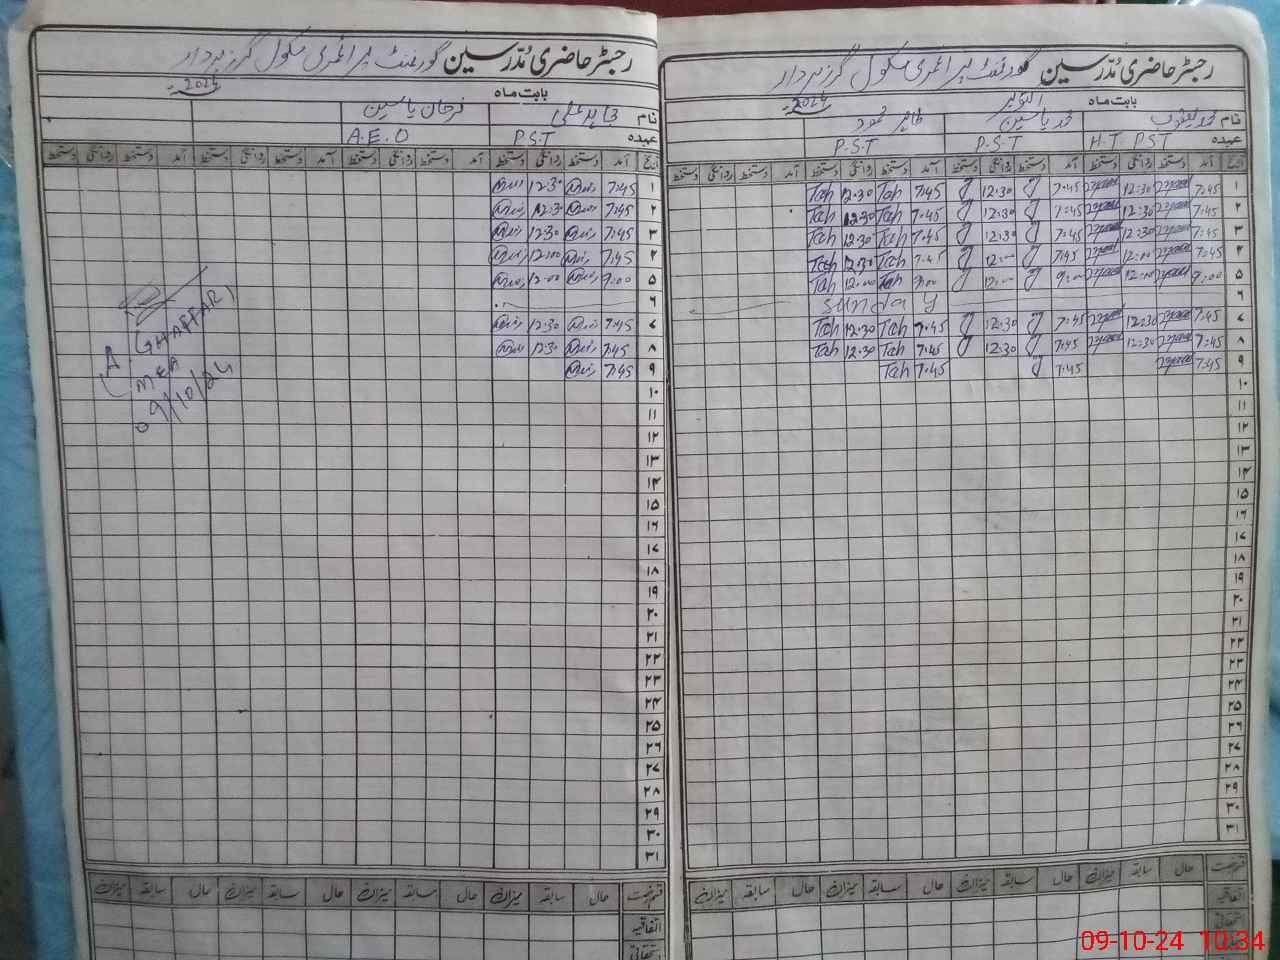 رجسٹر حاضری مُدرسین گورنمنٹ پرائمری سکول گرز بردار
بابت ماہ اکتوبر 2024
نام محمد یعقوب محمد یاسین طاہر محمود
عہدہ H.T. PST P.S.T P.S.T
تاریخ آمد دستخط روانگی دستخط آمد دستخط روانگی دستخط آمد دستخط روانگی دستخط آمد دستخط روانگی دستخط
۱ 7:45 12:30 7:45 12:30 7:45 Tah 12:30 Tah
۲ 7:45 12:30 7:45 12:30 7:45 Tah 12:30 Tah
۳ 7:45 12:30 7:45 12:30 7:45 Tah 12:30 Tah
۴ 7:45 12:00 7:45 12:00 7:45 Tah 12:30 Tah
۵ 9:00 12:00 9:00 12:00 9:00 Tah 12:00 Tah
۶ Sunday
۷ 7:45 12:30 7:45 12:30 7:45 Tah 12:30 Tah
۸ 7:45 12:30 7:45 12:30 7:45 Tah 12:30 Tah
۹ 7:45 7:45 7:45 Tah
۱۰
۱۱
۱۲
۱۳
۱۴
۱۵
۱۶
۱۷
۱۸
۱۹
۲۰
۲۱
۲۲
۲۳
۲۴
۲۵
۲۶
۲۷
۲۸
۲۹
۳۰
۳۱
قسم رخصت حال سابقہ میزان حال سابقہ میزان حال سابقہ میزان حال سابقہ میزان
اتفاقیہ
استحقاقی
رجسٹر حاضری مُدرسین گورنمنٹ پرائمری سکول گرز بردار
بابت ماہ 2024
نام فرحان یاسین
عہدہ P.S.T A.E.O
تاریخ آمد دستخط روانگی دستخط آمد دستخط روانگی دستخط آمد دستخط روانگی دستخط آمد دستخط روانگی دستخط
۱ 7:45 12:30
۲ 7:45 12:30
۳ 7:45 12:30
۴ 7:45 12:00
۵ 9:00 12:00
۶
۷ 7:45 12:30
۸ 7:45 12:30
۹ 7:45
۱۰
۱۱
۱۲
۱۳
۱۴
۱۵
۱۶
۱۷
۱۸
۱۹
۲۰
۲۱
۲۲
۲۳
۲۴
۲۵
۲۶
۲۷
۲۸
۲۹
۳۰
۳۱
(A. GHAFFAR)
MEA
09/10/24
قسم رخصت حال سابقہ میزان حال سابقہ میزان حال سابقہ میزان حال سابقہ میزان
اتفاقیہ
استحقاقی
09-10-24 10:34